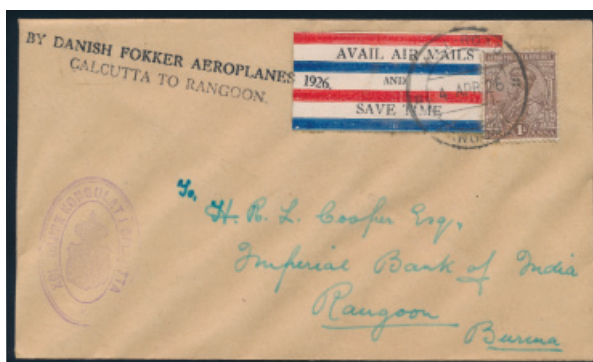 BY DANISH FOKKER AEROPLANES 1926.
CALCUTTA TO RANGOON.
AVAIL AIR MAILS
AND
SAVE TIME
4 APR 26
1 A
To,
H. R. L. Cooper Esq.,
Imperial Bank of India
Rangoon
Burma